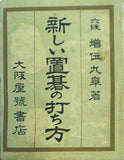 六段 増位九皐著
新しい置碁の打ち方
大阪屋號書店